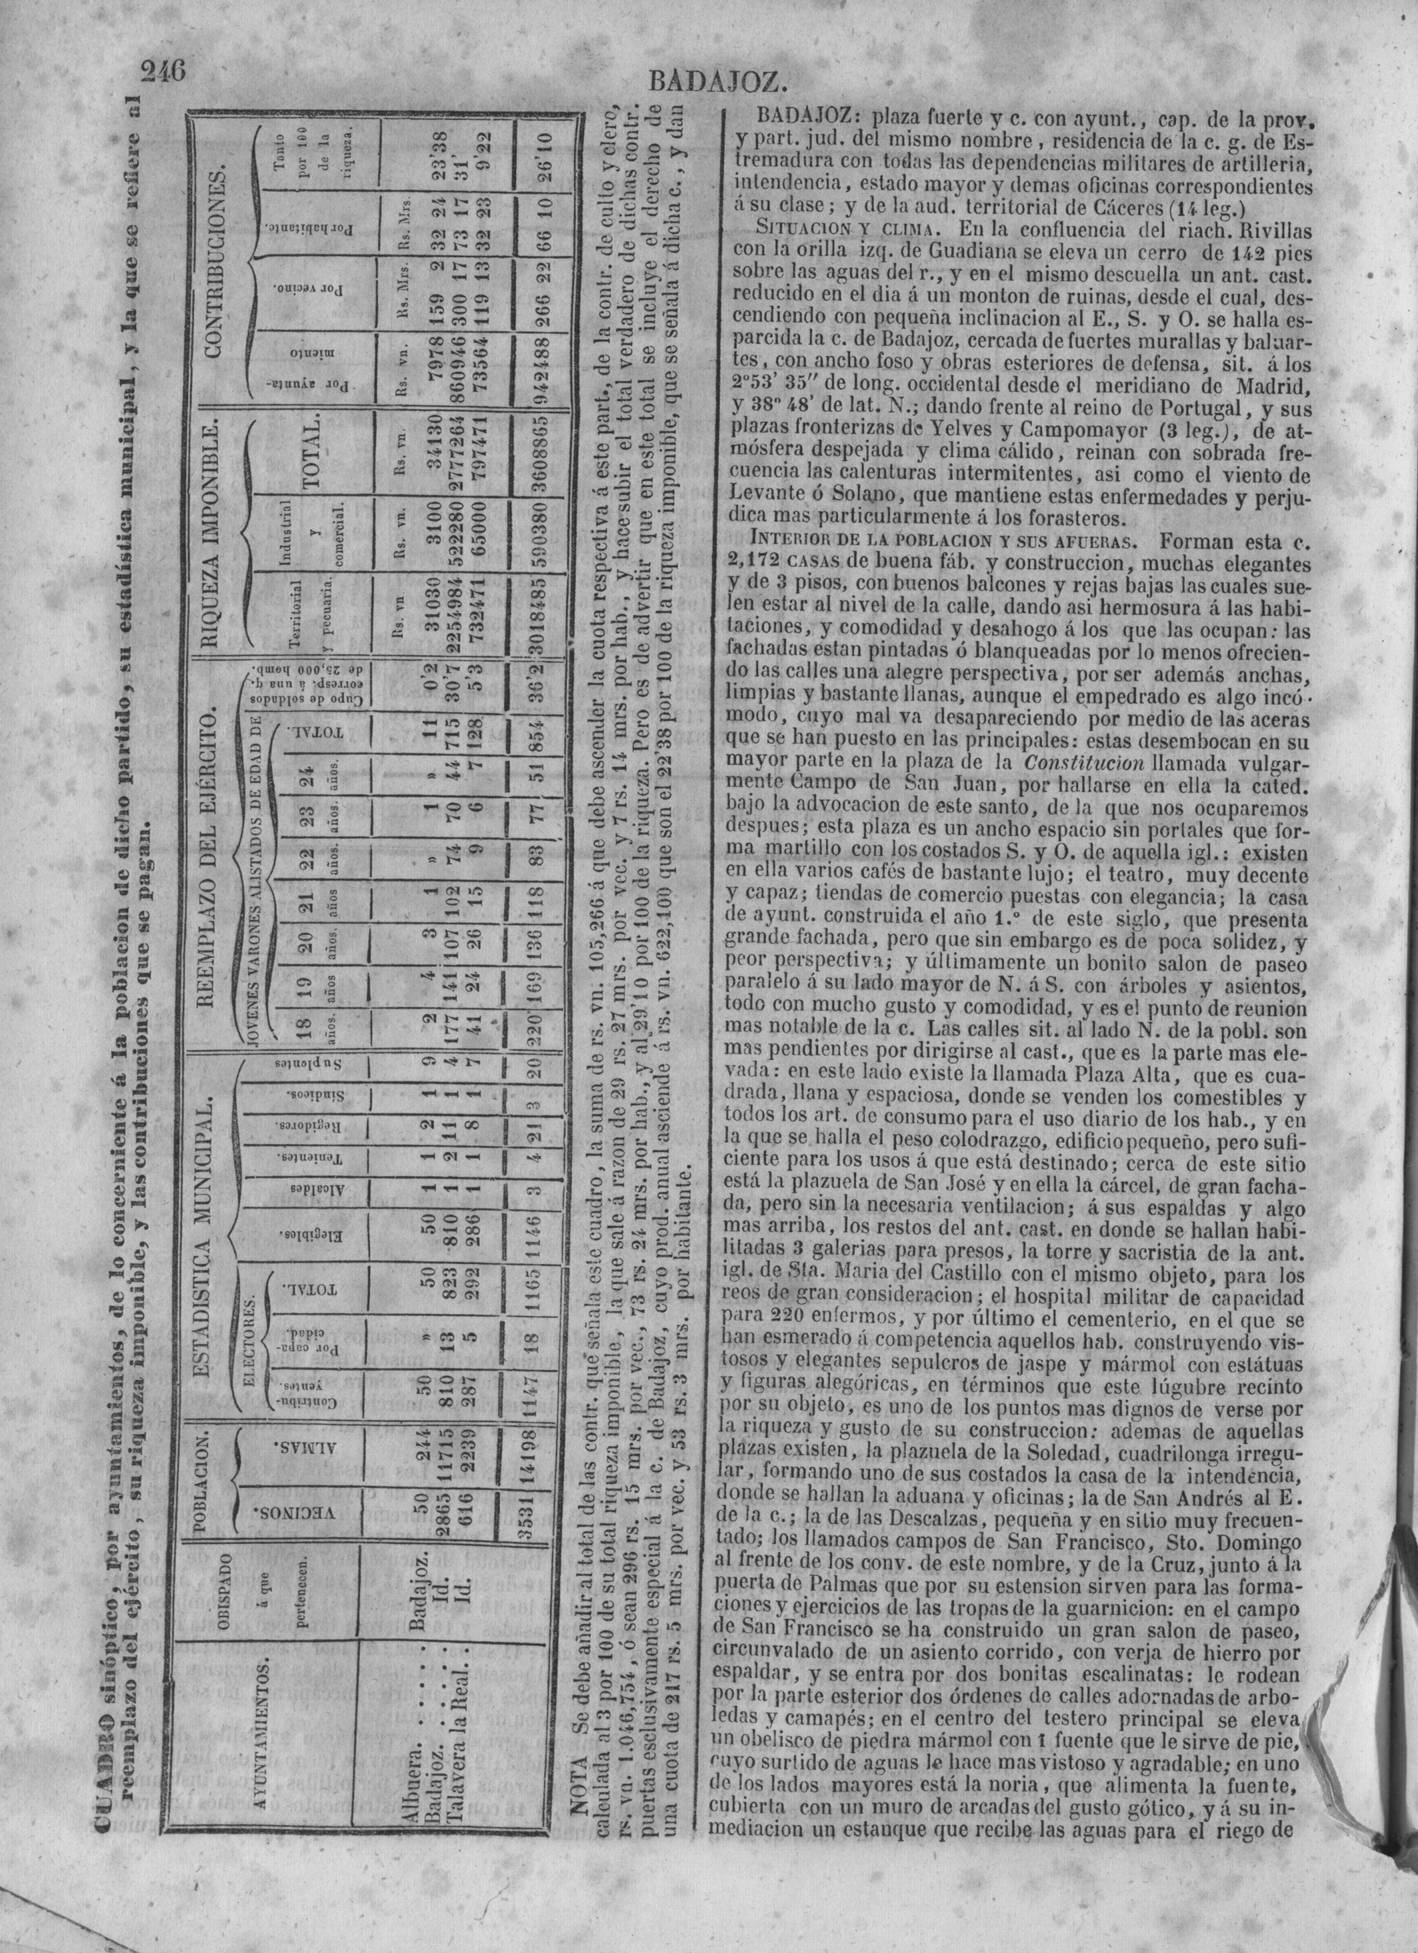 246
BADAJOZ.
CUADRO sinóptico, por ayuntamientos, de lo concerniente á la poblacion de dicho partido, su estadística municipal, y la que se refiere al
reemplazo del ejército, su riqueza imponible, y las contribuciones que se pagan.
AYUNTAMIENTOS.
OBISPADO
á que
pertenecen.
POBLACION.
VECINOS.
ALMAS.
ESTADISTICA MUNICIPAL.
ELECTORES.
Contribu-
yentes.
Por capa-
cidad.
TOTAL.
Elegibles.
Alcaldes
Tenientes.
Regidores.
Sindicos.
Suplentes
REEMPLAZO DEL EJÉRCITO.
JOVENES VARONES ALISTADOS DE EDAD DE
18 años.
19 años
20 años.
21 años
22 años.
23 años.
24 años.
TOTAL.
Cupo de soldados
corresp. á una q.
de 25,000 homb.
RIQUEZA IMPONIBLE.
Territorial
y pecuaria.
Industrial
y
comercial.
TOTAL.
CONTRIBUCIONES.
Por ayunta-
miento
Por vecino.
Por habitante.
Tanto
por 100
de la
riqueza.
Rs. vn Rs. vn. Rs. vn. Rs. vn. Rs. Mrs. Rs. Mrs.
Albuera. . . . . . Badajoz. 50 244 50 » 50 50 1 1 2 1 9 2 4 3 1 » 1 » 11 0'2 31030 3100 34130 7978 159 2 32 24 23'38
Badajoz. . . . . . Id. 2865 11715 810 13 823 810 1 2 11 1 4 177 141 107 102 74 70 44 715 30'7 2254984 522280 2777264 860946 300 17 73 17 31'
Talavera la Real. . Id. 616 2239 287 5 292 286 1 1 8 1 7 41 24 26 15 9 6 7 128 5'3 732471 65000 797471 73564 119 13 32 23 9'22
3531 14198 1147 18 1165 1146 3 4 21 3 20 220 169 136 118 83 77 51 854 36'2 3018485 590380 3608865 942488 266 22 66 10 26'10
NOTA Se debe añadir al total de las contr. que señala este cuadro, la suma de rs. vn. 105,266 á que debe ascender la cuota respectiva á este part., de la contr. de culto y clero,
calculada al 3 por 100 de su total riqueza imponible, la que sale á razon de 29 rs. 27 mrs. por vec. y 7 rs. 14 mrs. por hab., y hace subir el total verdadero de dichas contr.
rs. vn. 1.046,754, ó sean 296 rs. 15 mrs. por vec., 73 rs. 24 mrs. por hab., y al 29'10 por 100 de la riqueza. Pero es de advertir que en este total se incluye el derecho de
puertas esclusivamente especial á la c. de Badajoz, cuyo prod. anual asciende á rs. vn. 622,100 que son el 22'38 por 100 de la riqueza imponible, que se señala á dicha c., y dan
una cuota de 217 rs. 5 mrs. por vec. y 53 rs. 3 mrs. por habitante.
BADAJOZ: plaza fuerte y c. con ayunt., cap. de la prov.
y part. jud. del mismo nombre, residencia de la c. g. de Es-
tremadura con todas las dependencias militares de artilleria,
intendencia, estado mayor y demas oficinas correspondientes
á su clase; y de la aud. territorial de Cáceres (14 leg.)
SITUACION Y CLIMA. En la confluencia del riach. Rivillas
con la orilla izq. de Guadiana se eleva un cerro de 142 pies
sobre las aguas del r., y en el mismo descuella un ant. cast.
reducido en el dia á un monton de ruinas, desde el cual, des-
cendiendo con pequeña inclinacion al E., S. y O. se halla es-
parcida la c. de Badajoz, cercada de fuertes murallas y baluar-
tes, con ancho foso y obras esteriores de defensa, sit. á los
2°53' 35" de long. occidental desde el meridiano de Madrid,
y 38° 48' de lat. N.; dando frente al reino de Portugal, y sus
plazas fronterizas de Yelves y Campomayor (3 leg.), de at-
mósfera despejada y clima cálido, reinan con sobrada fre-
cuencia las calenturas intermitentes, asi como el viento de
Levante ó Solano, que mantiene estas enfermedades y perju-
dica mas particularmente á los forasteros.
INTERIOR DE LA POBLACION Y SUS AFUERAS. Forman esta c.
2,172 CASAS de buena fáb. y construccion, muchas elegantes
y de 3 pisos, con buenos balcones y rejas bajas las cuales sue-
len estar al nivel de la calle, dando asi hermosura á las habi-
taciones, y comodidad y desahogo á los que las ocupan: las
fachadas estan pintadas ó blanqueadas por lo menos ofrecien-
do las calles una alegre perspectiva, por ser además anchas,
limpias y bastante llanas, aunque el empedrado es algo incó-
modo, cuyo mal va desapareciendo por medio de las aceras
que se han puesto en las principales: estas desembocan en su
mayor parte en la plaza de la Constitucion llamada vulgar-
mente Campo de San Juan, por hallarse en ella la cated.
bajo la advocacion de este santo, de la que nos ocuparemos
despues; esta plaza es un ancho espacio sin portales que for-
ma martillo con los costados S. y O. de aquella igl.: existen
en ella varios cafés de bastante lujo; el teatro, muy decente
y capaz; tiendas de comercio puestas con elegancia; la casa
de ayunt. construida el año 1.° de este siglo, que presenta
grande fachada, pero que sin embargo es de poca solidez, y
peor perspectiva; y últimamente un bonito salon de paseo
paralelo á su lado mayor de N. á S. con árboles y asientos,
todo con mucho gusto y comodidad, y es el punto de reunion
mas notable de la c. Las calles sit. al lado N. de la pobl. son
mas pendientes por dirigirse al cast., que es la parte mas ele-
vada: en este lado existe la llamada Plaza Alta, que es cua-
drada, llana y espaciosa, donde se venden los comestibles y
todos los art. de consumo para el uso diario de los hab., y en
la que se halla el peso colodrazgo, edificio pequeño, pero sufi-
ciente para los usos á que está destinado; cerca de este sitio
está la plazuela de San José y en ella la cárcel, de gran facha-
da, pero sin la necesaria ventilacion; á sus espaldas y algo
mas arriba, los restos del ant. cast. en donde se hallan habi-
litadas 3 galerias para presos, la torre y sacristia de la ant.
igl. de Sta. Maria del Castillo con el mismo objeto, para los
reos de gran consideracion; el hospital militar de capacidad
para 220 enfermos, y por último el cementerio, en el que se
han esmerado á competencia aquellos hab. construyendo vis-
tosos y elegantes sepulcros de jaspe y mármol con estátuas
y figuras alegóricas, en términos que este lúgubre recinto
por su objeto, es uno de los puntos mas dignos de verse por
la riqueza y gusto de su construccion: ademas de aquellas
plazas existen, la plazuela de la Soledad, cuadrilonga irregu-
lar, formando uno de sus costados la casa de la intendencia,
donde se hallan la aduana y oficinas; la de San Andrés al E.
de la c.; la de las Descalzas, pequeña y en sitio muy frecuen-
tado; los llamados campos de San Francisco, Sto. Domingo
al frente de los conv. de este nombre, y de la Cruz, junto á la
puerta de Palmas que por su estension sirven para las forma-
ciones y ejercicios de las tropas de la guarnicion: en el campo
de San Francisco se ha construido un gran salon de paseo,
circunvalado de un asiento corrido, con verja de hierro por
espaldar, y se entra por dos bonitas escalinatas: le rodean
por la parte esterior dos órdenes de calles adornadas de arbo-
ledas y camapés; en el centro del testero principal se eleva
un obelisco de piedra mármol con 1 fuente que le sirve de pie,
cuyo surtido de aguas le hace mas vistoso y agradable; en uno
de los lados mayores está la noria, que alimenta la fuente,
cubierta con un muro de arcadas del gusto gótico, y á su in-
mediacion un estanque que recibe las aguas para el riego de